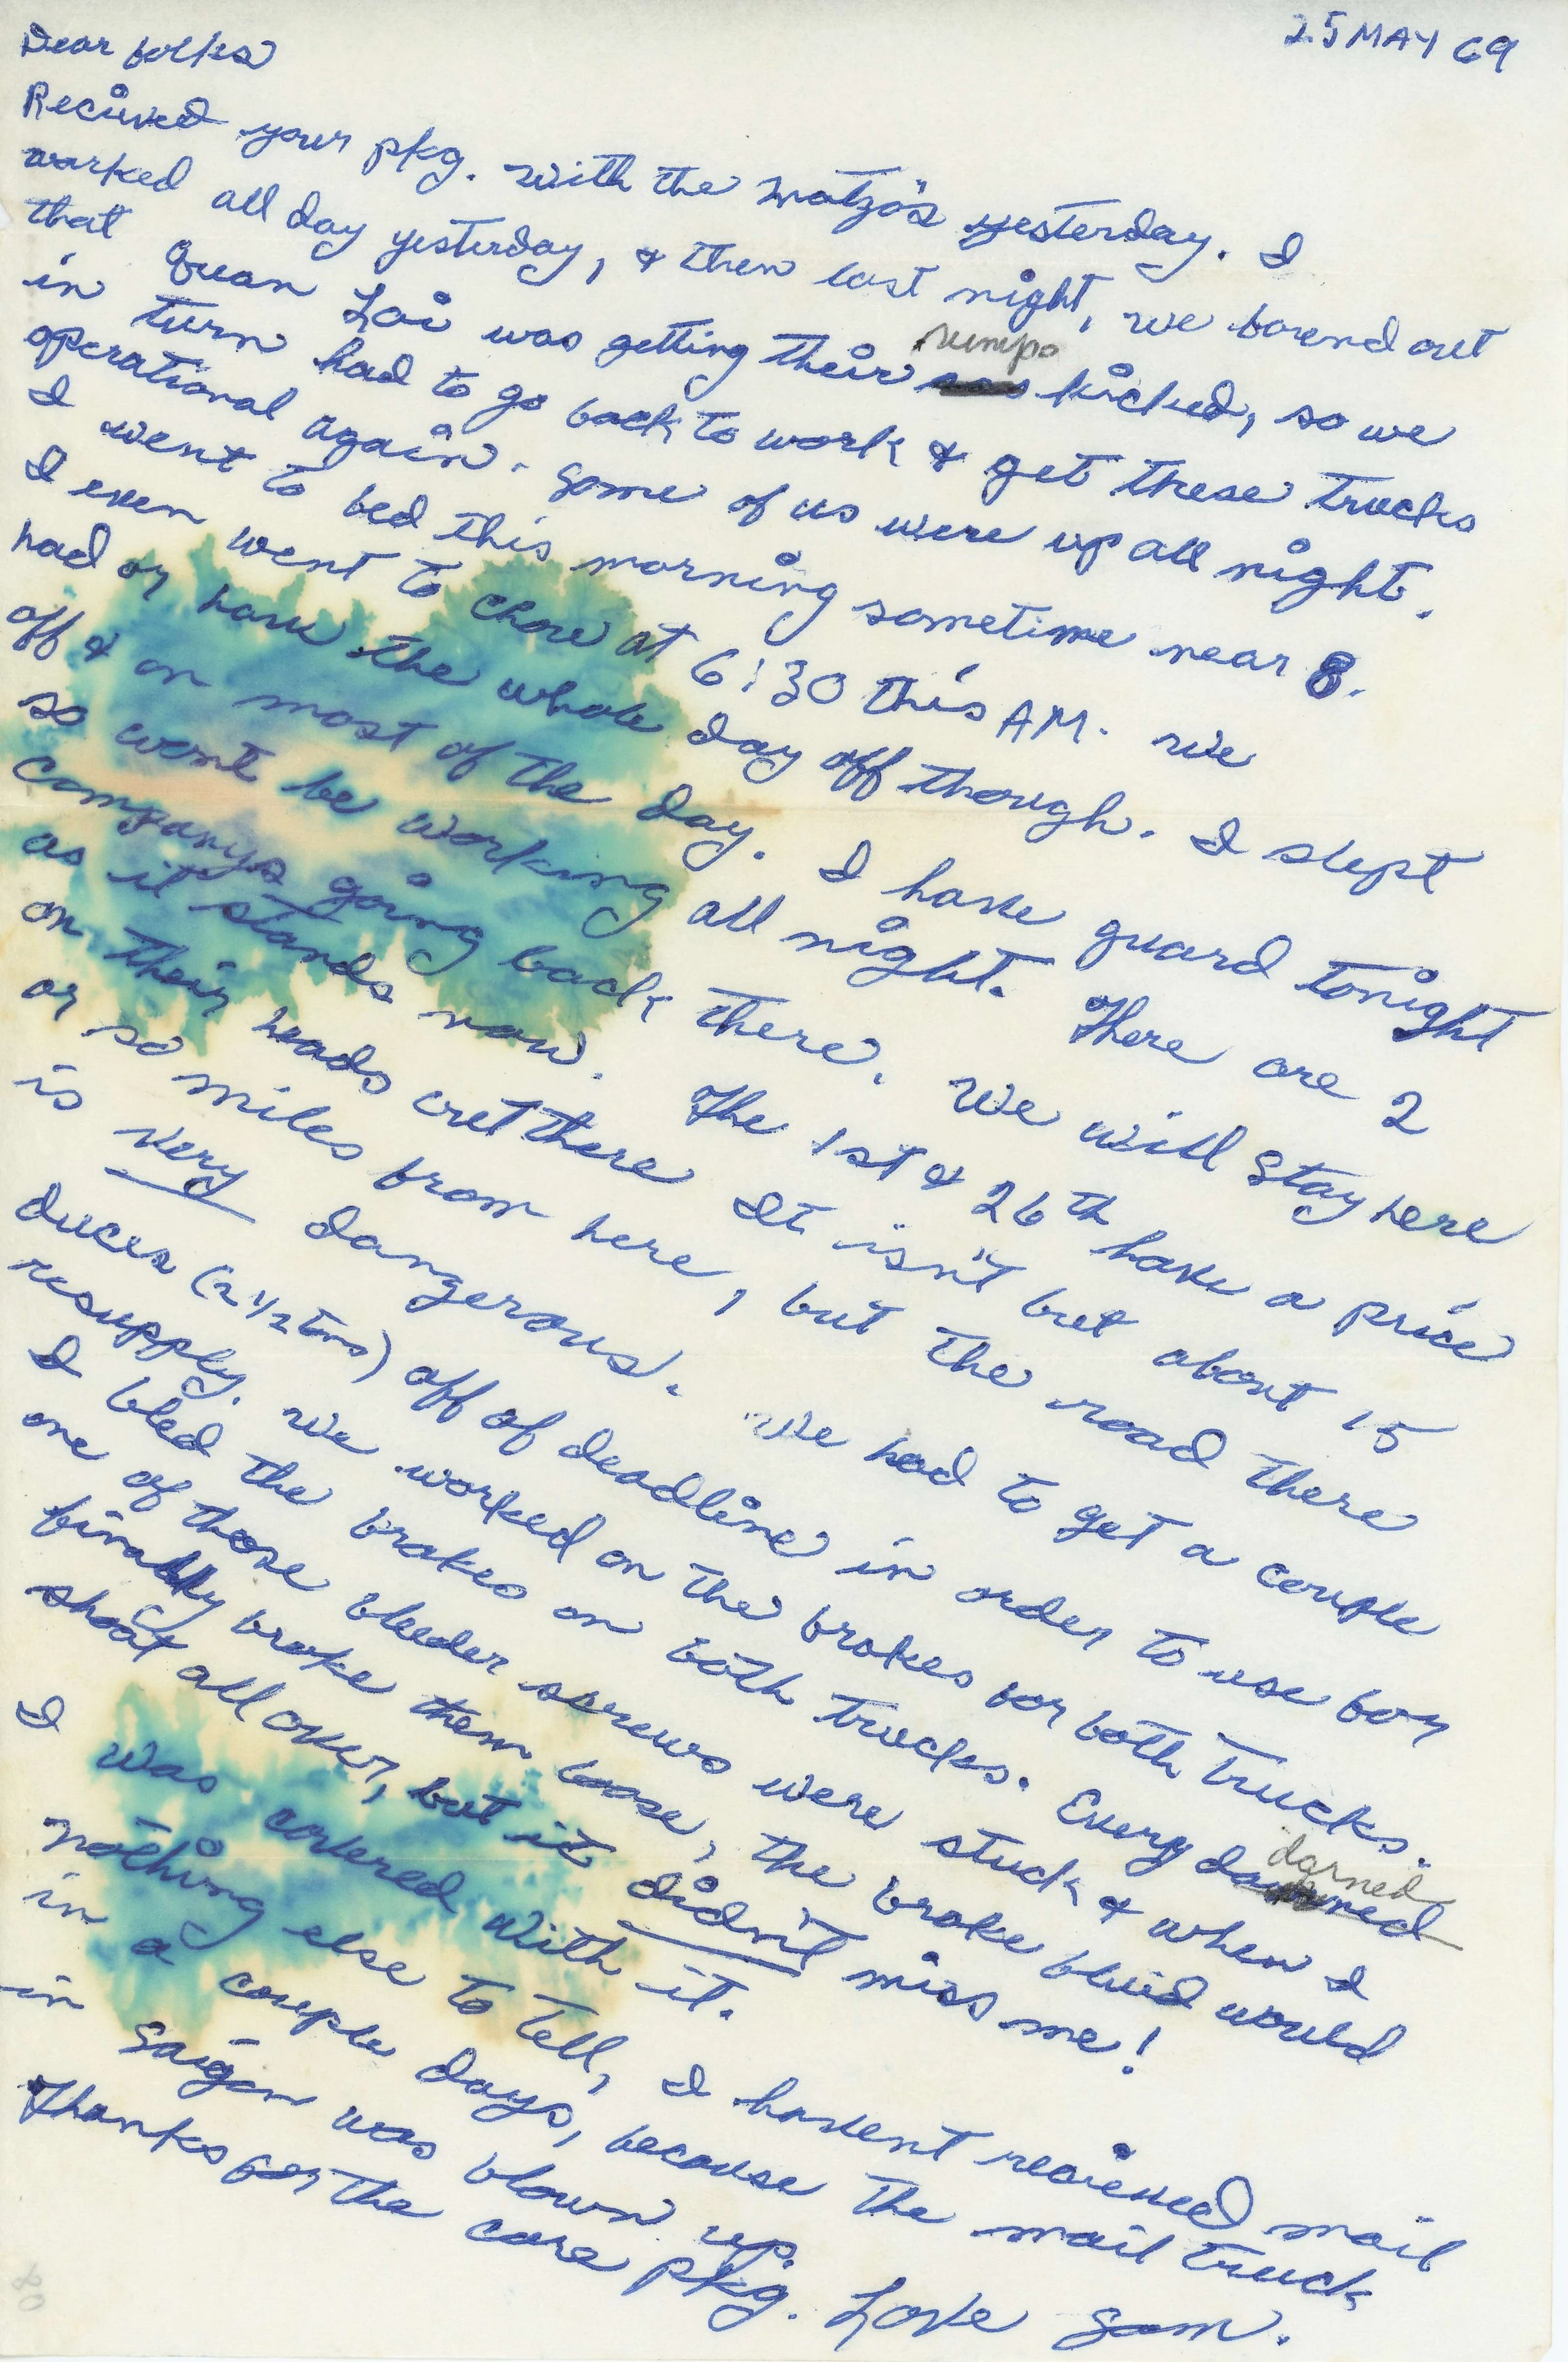 25 MAY 69
Dear folks
Recieved your pkg. with the matzo's yesterday. I
worked all day yesterday, & then last night, we found out
that Quan Loi was getting their rumps kicked, so we
in turn had to go back to work & get these trucks
operational again. Some of us were up all night.
I went to bed this morning sometime near 8.
I even went to chow at 6:30 this AM. We
had or have the whole day off though. I slept
off & on most of the day. I have guard tonight
so wont be working all night. There are 2
companys going back there. We will stay here
as it stands now. The 1st & 26th have a price
on their heads out there It isn't but about 15
or so miles from here, but the road there
is very dangerous. We had to get a couple
duces (2 1/2 tons) off of deadline in order to use for
resupply. We worked on the brakes for both trucks.
I bled the brakes on both trucks. Every darned
one of those bleeder screws were stuck & when I
finally broke them loose, the brake fluid would
shoot all over, but it didn't miss me!
I was covered with it.
Nothing else to tell, I havent recieved mail
in a couple days, because the mail truck
in Saigon was blown up.
Thanks for the care pkg. Love Sam.